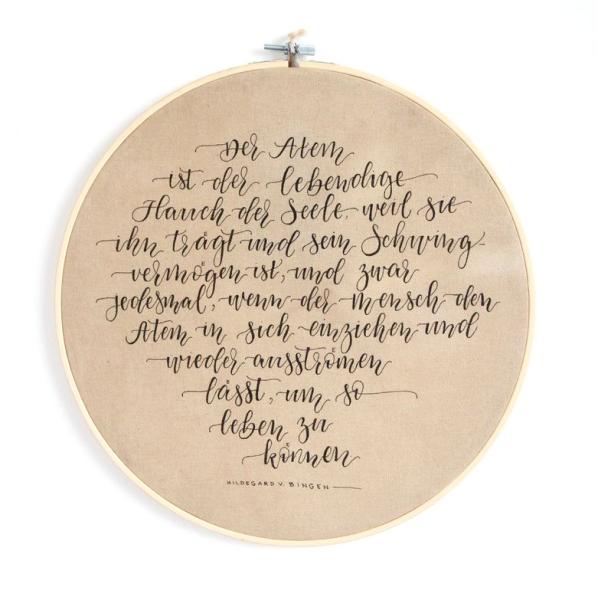 Der Atem
ist der lebendige
Hauch der Seele, weil sie
ihn trägt und sein Schwing-
vermögen ist, und zwar
jedesmal, wenn der mensch den
Atem in sich einziehen und
wieder ausströmen
lässt, um so
leben zu
können
HILDEGARD V. BINGEN